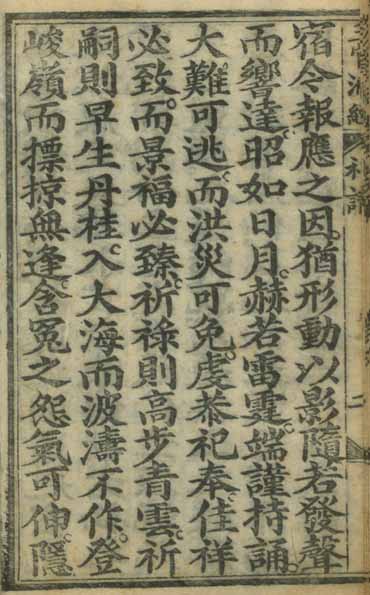 宿今報應之因。猶形動以影隨。若發聲
而響達。昭如日月。赫若雷霆。端謹持誦。
大難可逃。而洪災可免。虔恭祀奉。佳祥
必致。而景福必臻。祈祿則高步青雲。祈
嗣則早生丹桂。入大海而波濤不作。登
峻嶺而摽掠無逢。含冤之怨氣可伸。隱
二